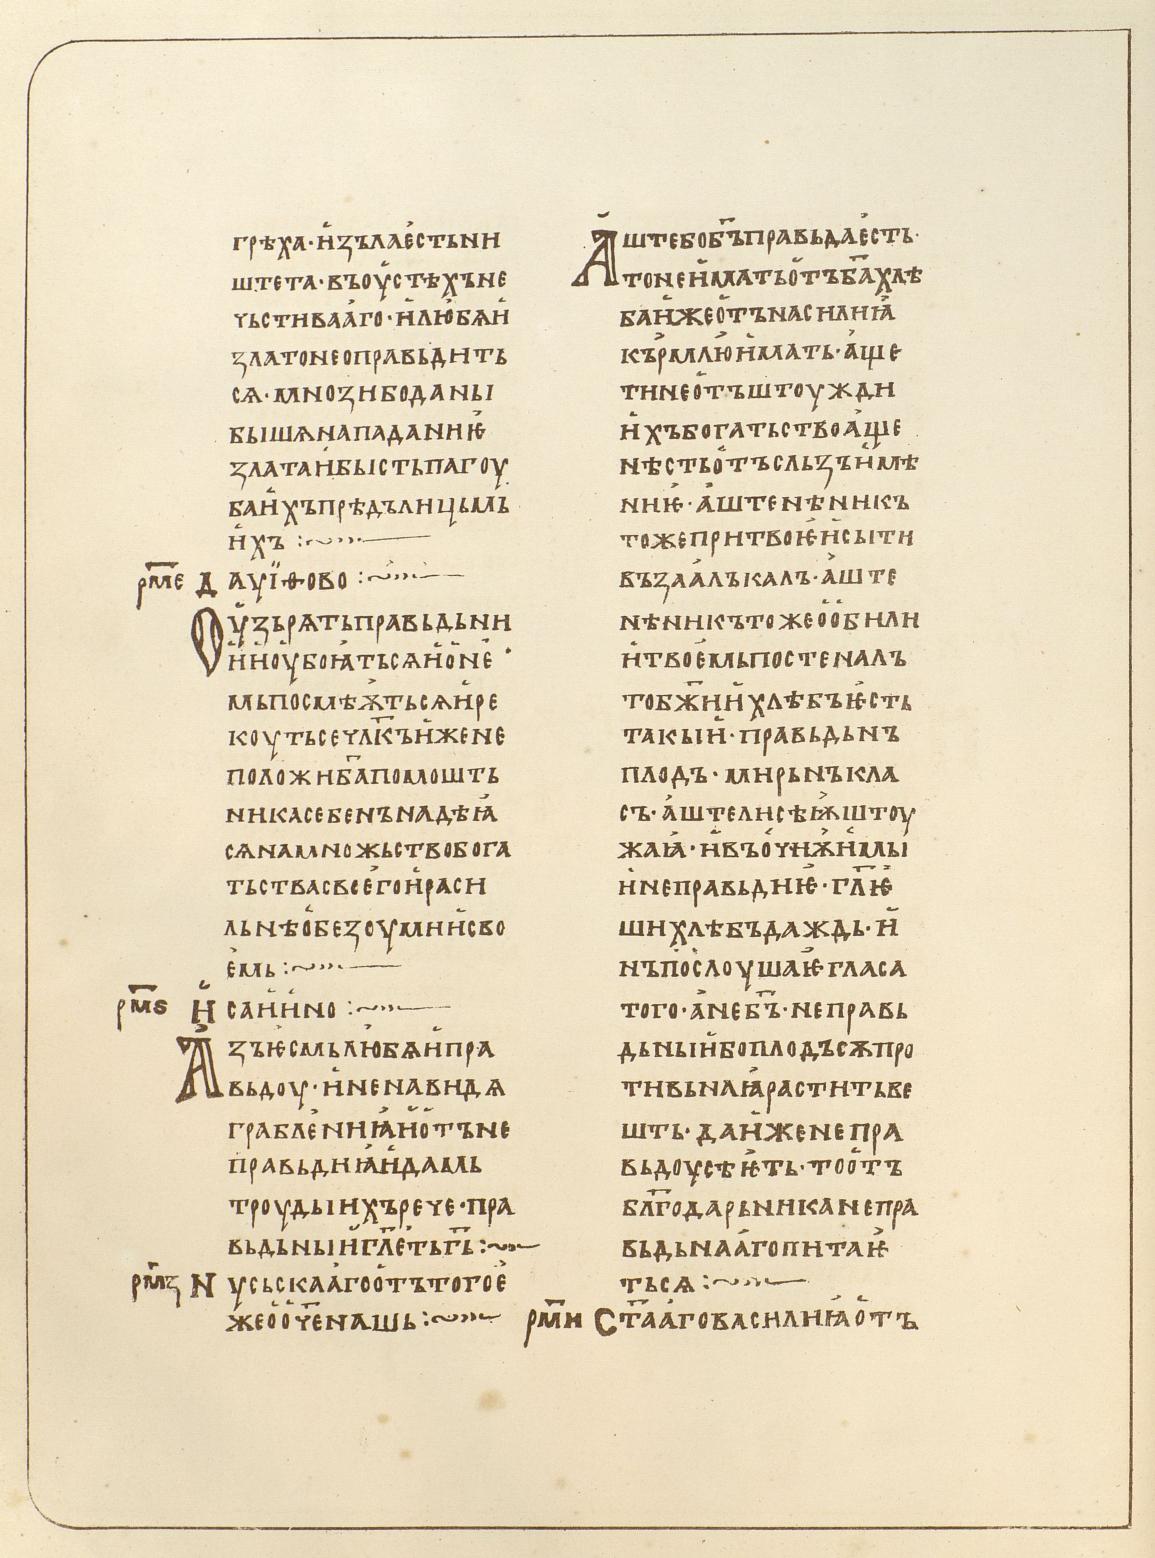 грѣха·и҆зълаѐстьни
штета·въоу҆стѣхъне
чьстиваа҆го·и҆лю҆бѧи҆
златонеоправьдить
сѧ·мнозибоданы
бышѧнападаниѥ
златаи҆быстьпагоу
баи҆хъпрѣдълицьмь
и҆хъ :~
р҃ме Дауїѳово :~
Оу҆зьрѧтьправьдьни
и҆и҆оу҆боꙗтьсѧи҆о҆не
мьпо҆смѣѭ҆тьсѧи҆ре
коутьсечл҃къи҆жене
положиб҃апомошть
никасебенънадѣꙗ
сѧнамножьствобога
тьствасвоѐгои҆раси
льнѣо҆безоумиисво
ѐмь :~
р҃мѕ И҆саи҆и҆но :~
А҆зъѥсмьлю҆бѧи҆пра
вьдоу·и҆ненавидѧ
граблѐниꙗи҆о҆тъне
правьдиꙗи҆дамь
троудыихърече·пра
вьдьныи҆гл҃етьгь҃:~
р҃мз Нусьскаа҆гоо҆тътогоѐ
жео҆о҆ч҃енашь:~
А҆штебоб҃ъправьдаѐсть·
тонеи҆матьо҆тъб҃ахлѣ
баи҆жео҆тънасилиꙗ
къ҆рмлю҆и҆мать·а҆ще
тинео҆тъштоужди
и҆хъбогатьствоа҆ще
нѣстьо҆тъсльзъи҆мѣ
ниѥ·а҆штенѣникъ
тожепритвоѥи҆сыти
възаа҆лъкалъ·а҆ште
нѣникътожео҆о҆били
и҆твоѐмьпостеналъ
тобж҃ии҆хлѣбъѥсть
такыи҆·правьдьнъ
плодъ·мирьнъкла
съ·а҆штелисѣѭштоу
жаꙗ·и҆въо҆униѫи҆мы
и҆неправьдиѥ·гл҃ѥ
шихлѣбъдаждь·и҆
нъпо҆слоушаѥгласа
того·а҆неб҃ъ·неправь
дьныи҆боплодъсѫпро
тивьнаꙗраститьве
шть·даи҆женепра
вьдоусѣѥть·тоо҆тъ
бл҃годарьниканепра
вьдьнаа҆гопитаѥ
тьсѧ :~
р҃ми Ст҃аа҆говасилиꙗо҆тъ